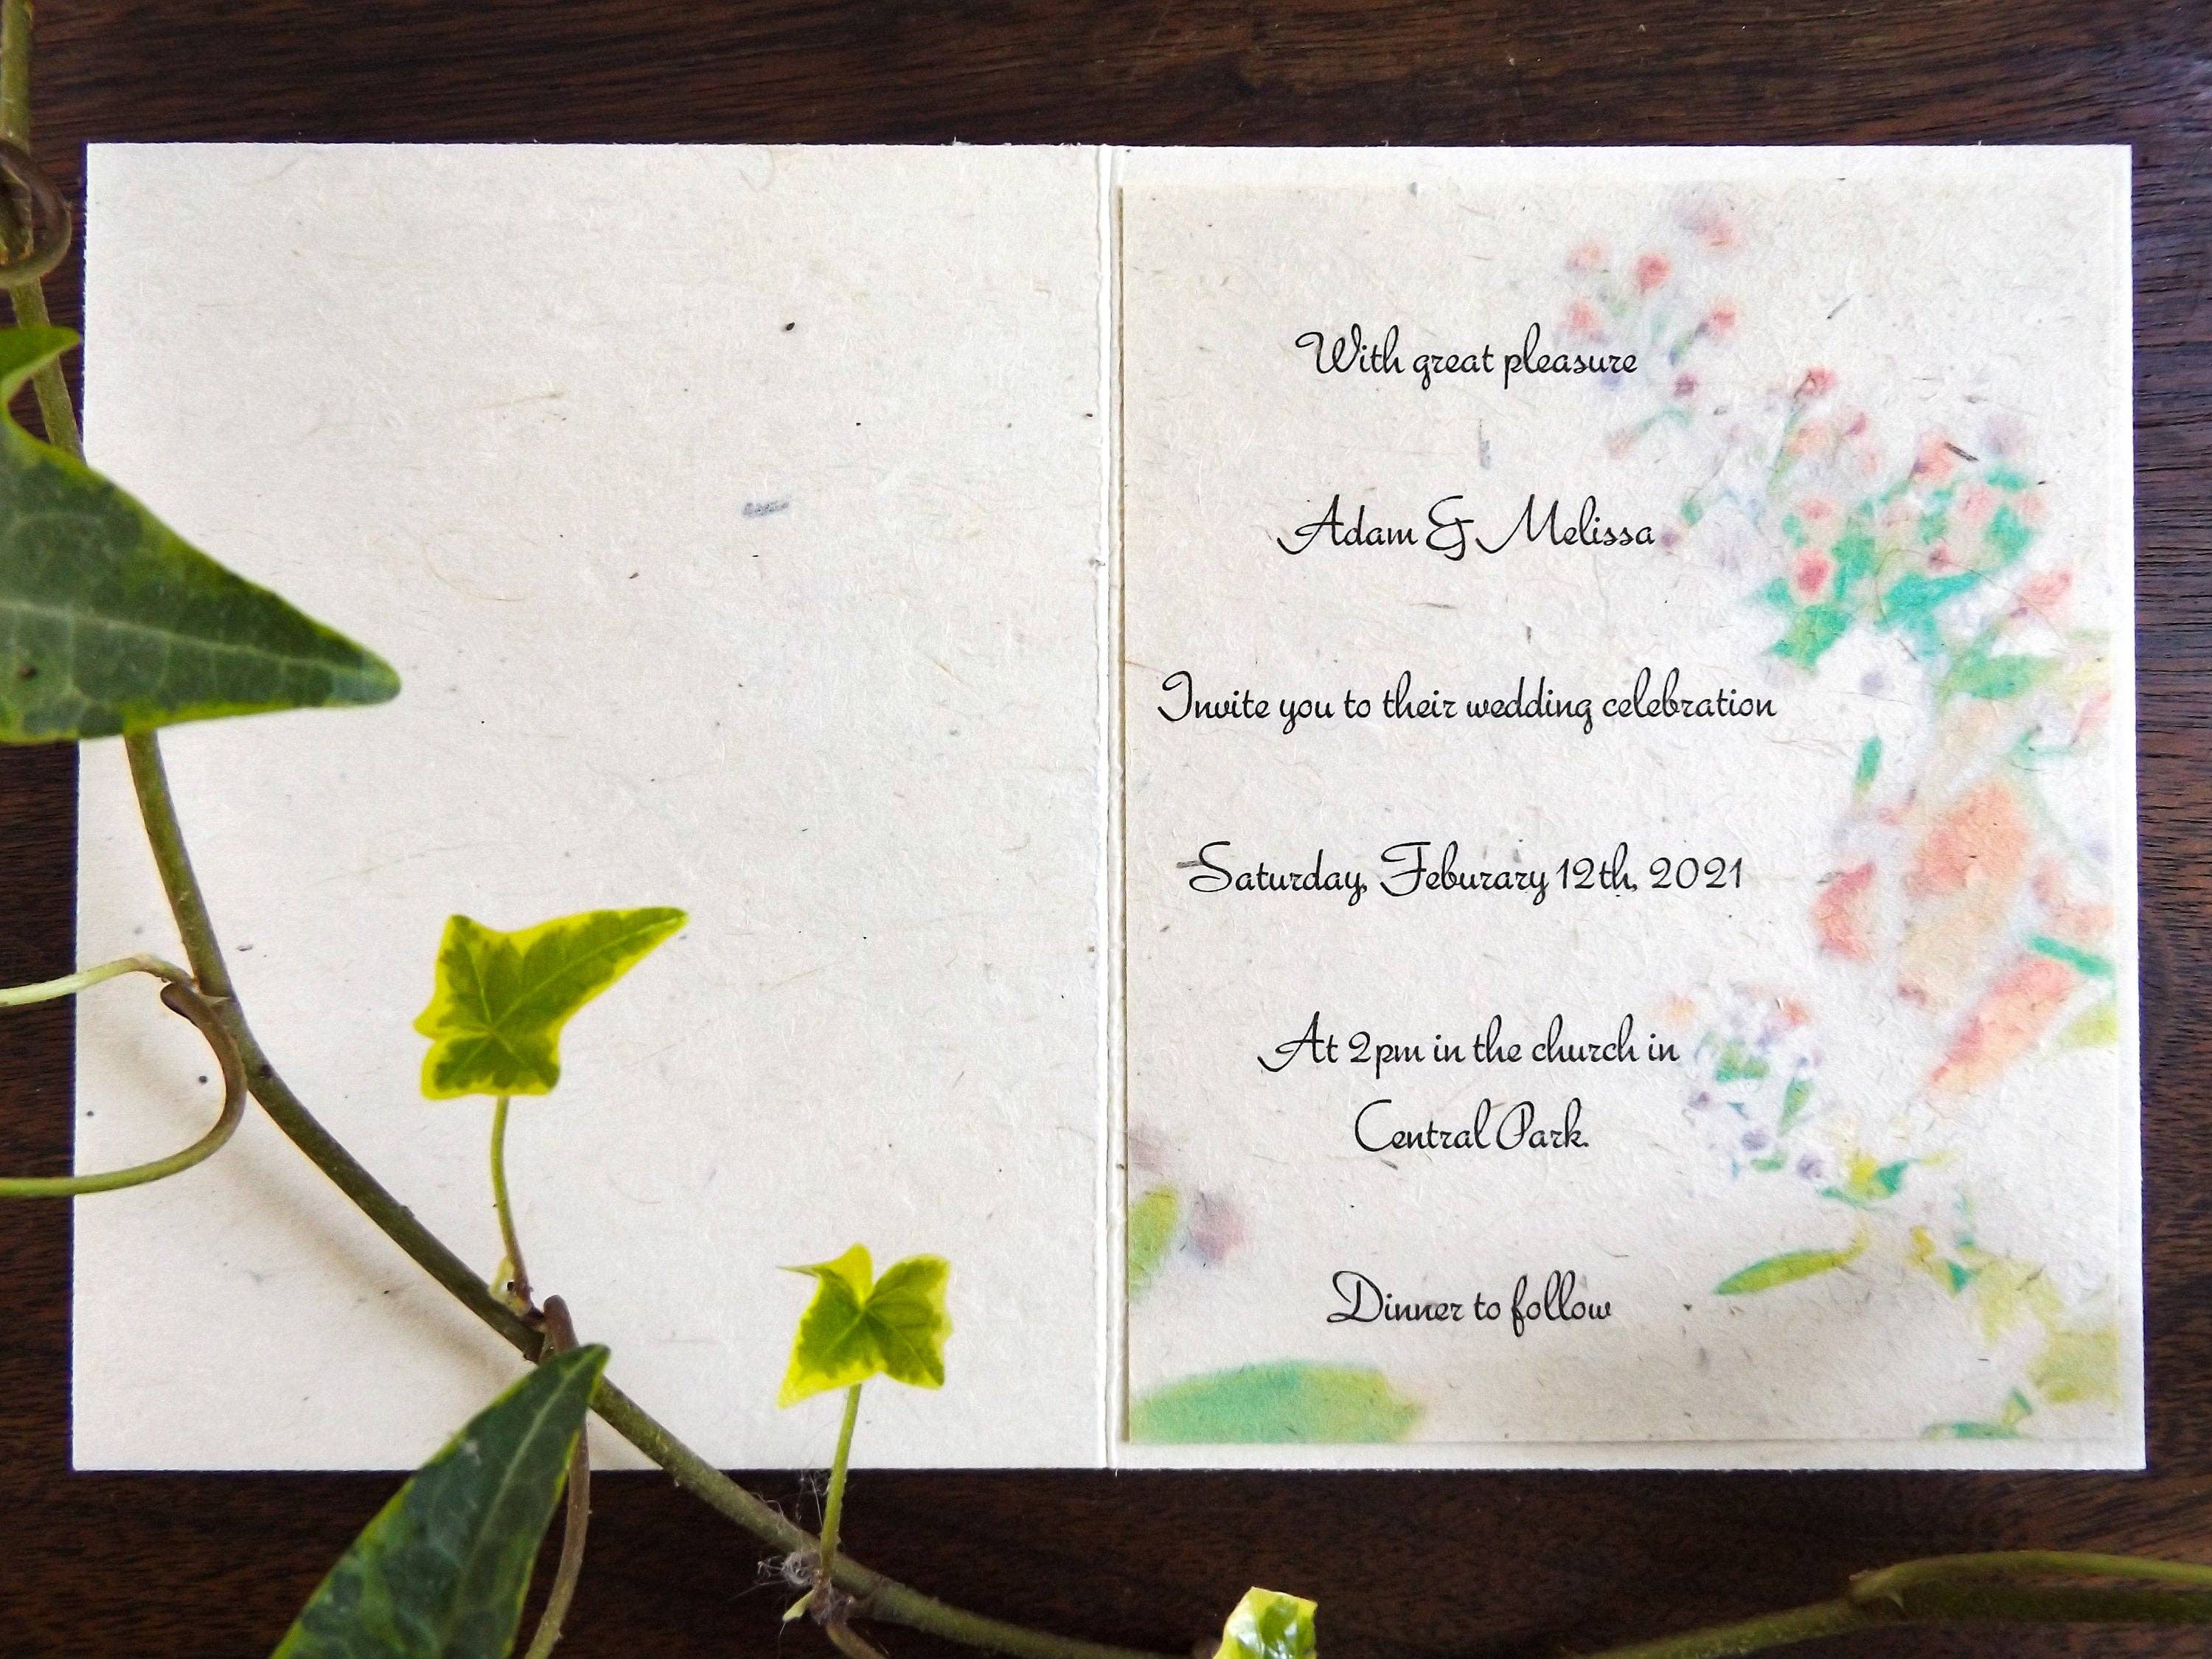 With great pleasure
Adam & Melissa
Invite you to their wedding celebration
Saturday, Feburary 12th, 2021
At 2pm in the church in
Central Park.
Dinner to follow